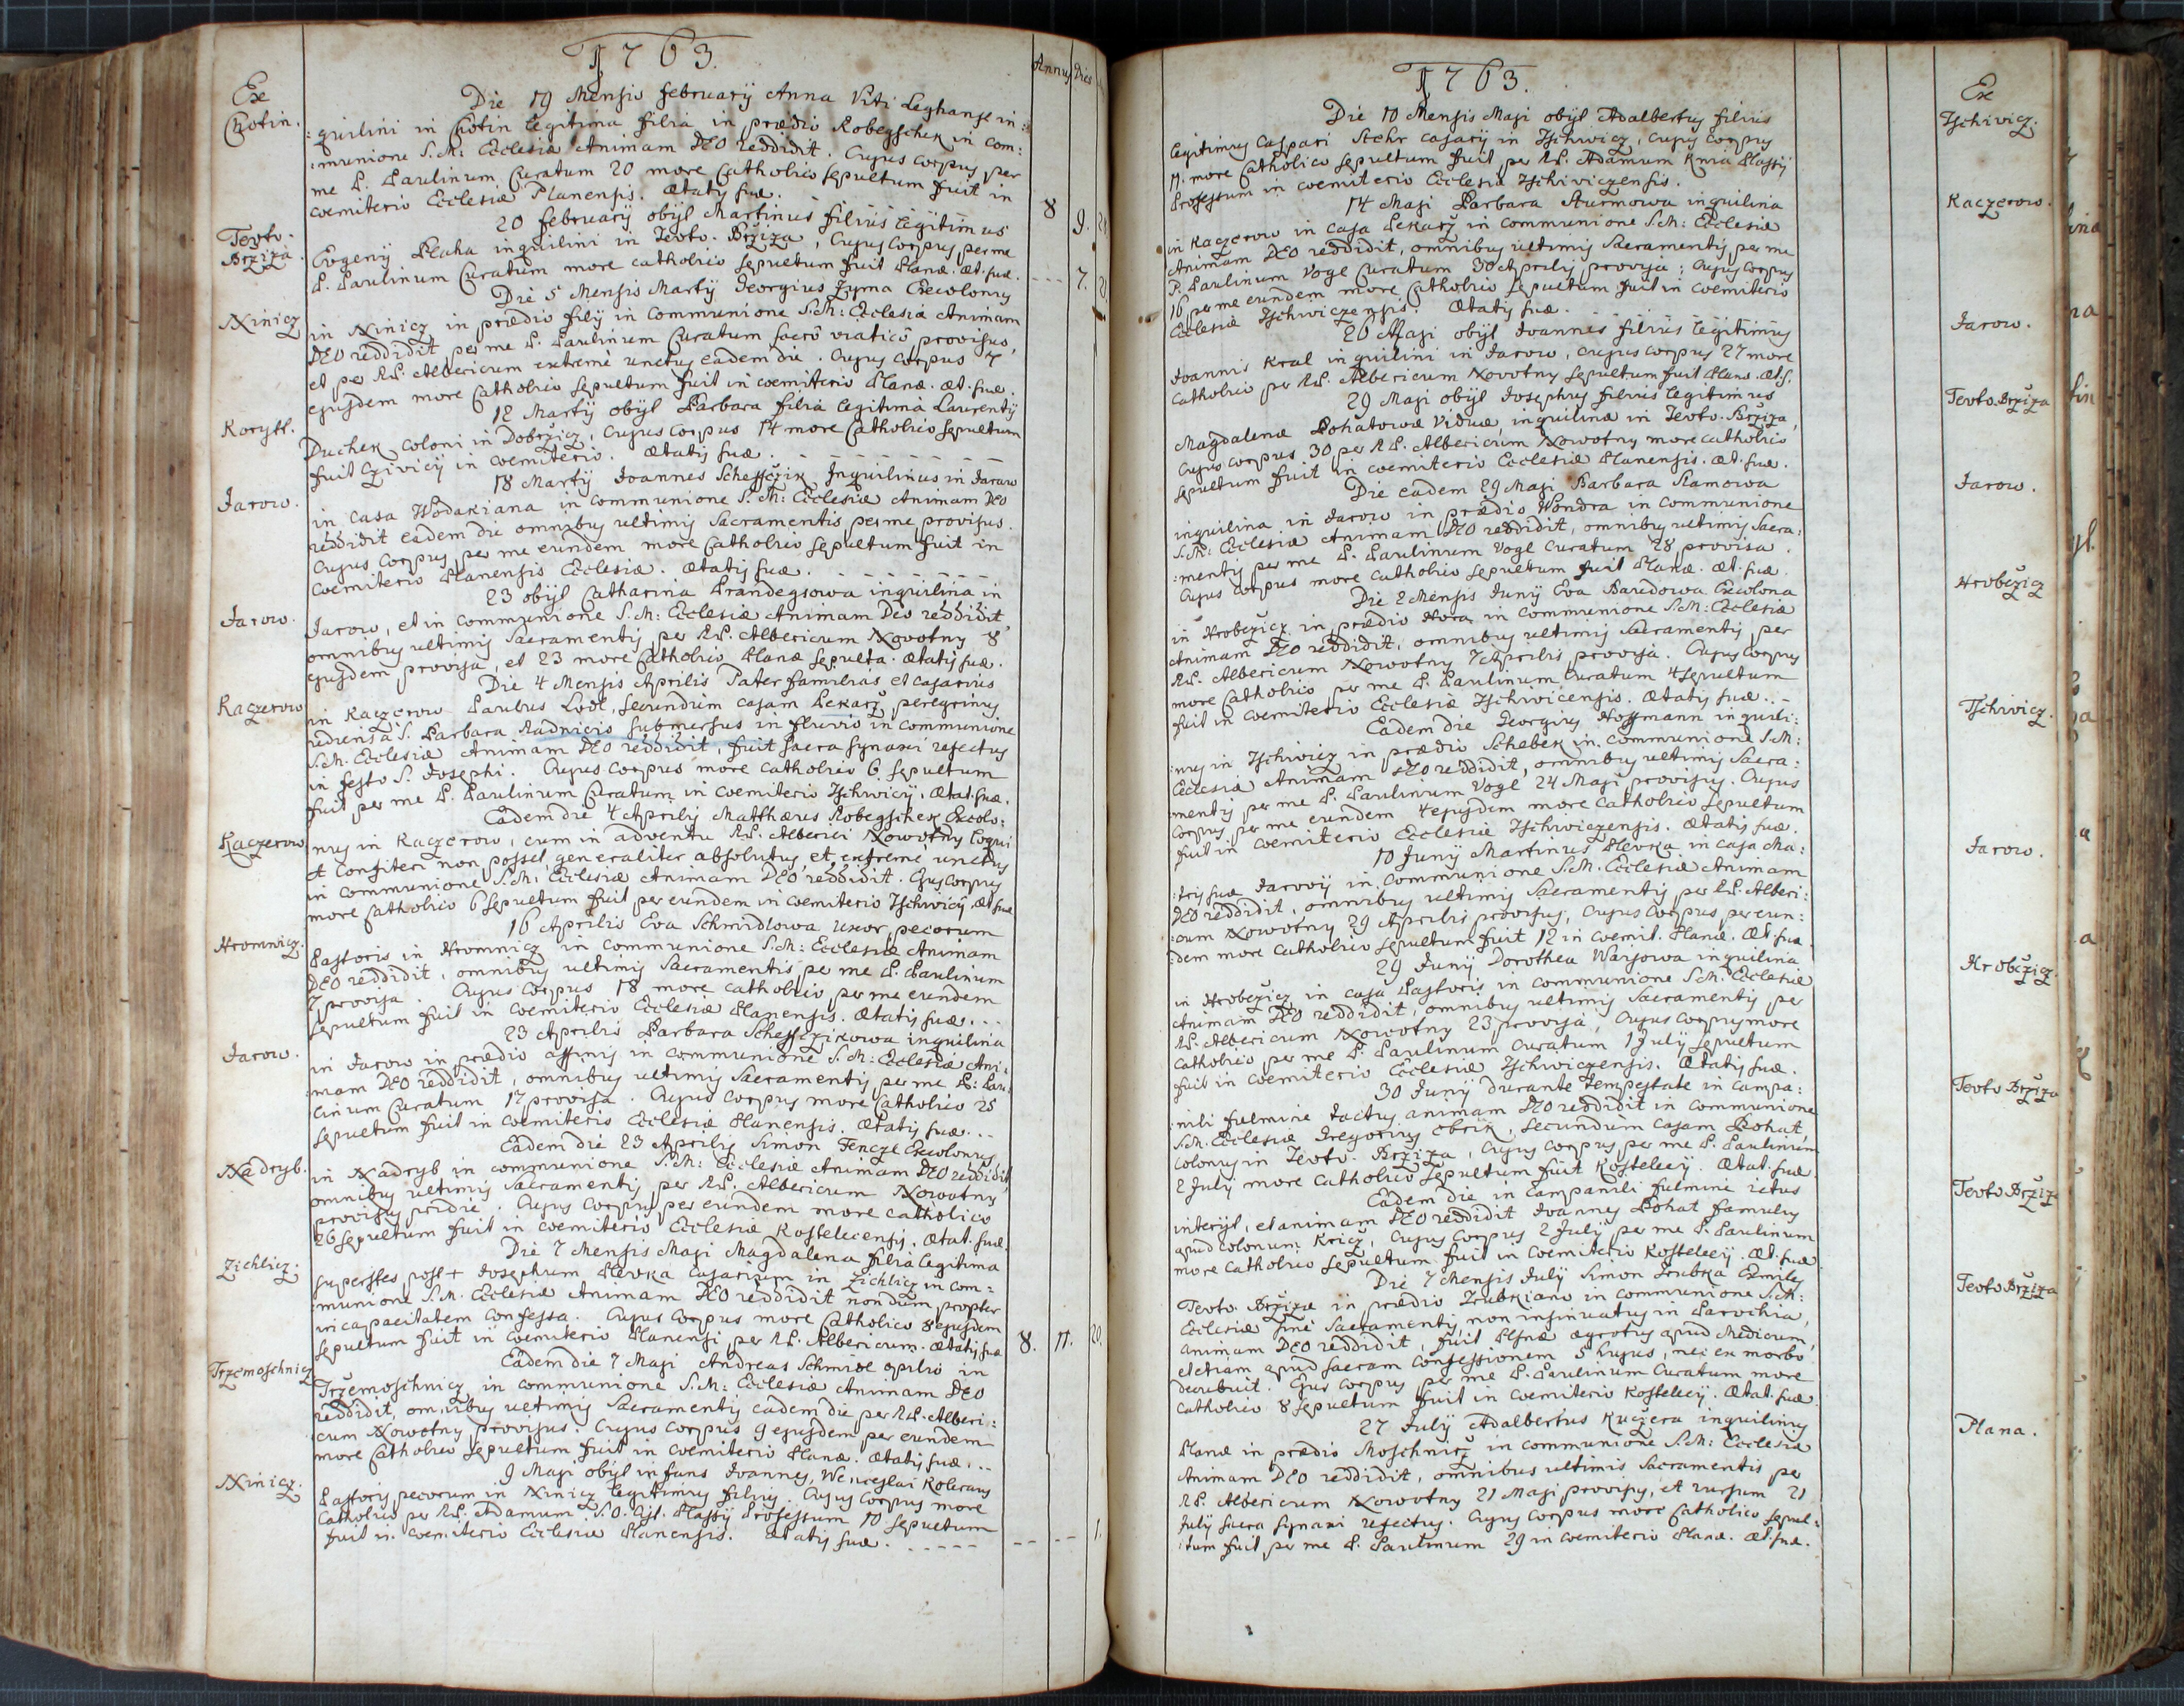 1763.
Annus Dies
Ex
Chotin.
Die 19 Mensis februarij Anna Viti Leghansl in:
:quilini in Chotin legitima filia in prædio Robegschek in com:
:munione S.M: Ecclesiæ Animam DEO reddidit. Cujus corpus per
me P. Paulinum Curatum 20 more Catholico sepultum fuit in
coemiterio Ecclesiæ Planensis. Ætatis suæ.
8 9.
Teuto-
Brziza.
20 february obijt Martinus filius legitimus
Evgenij Blaha inquilini in Teuto. Bržiza, Cujus Corpus per me
P. Paulinum Curatum more catholico sepultum fuit Planæ. æt. suæ.
7.
Xinicz
Die 5 Mensis Martij Georgius Zyma Exwlonus
in Xinicz in prædio filij in Communione S.M: Ecclesiæ Animam
DEO reddidit, per me P. Paulinum Curatum sacrô viaticô provisus,
et per R.P. Albericum extremè unctus eadem die. Cujus Corpus 7
ejusdem more Catholico sepultum fuit in coemiterio Planæ. æt. suæ.
Korytt.
12 Martij obijt Barbara filia legitima Laurentij
Duchek Coloni in Dobržicz, Cujus Corpus 14 more Catholico sepultum
fuit Czivicij in coemiterio. Ætatis suæ.
Jarow.
18 Martij Joannes Scheffczik Inquilinus in Jarow
in Casa Wodakiana in communione S.M: Ecclesiæ Animam DEO
reddidit eadem die omnibus ultimis Sacramentis per me provisus.
Cujus Corpus per me eundem more Catholico sepultum fuit in
Coemiterio Planensis Ecclesiæ. Ætatis suæ.
Jarow.
23 obijt Catharina Brandegsowa inquilina in
Jarow, et in communione S.M: Ecclesiæ Animam Deo reddidit
omnibus ultimis Sacramentis per R.P. Albericum Nowotny 8
ejusdem provisa, et 23 more Catholico Planæ sepulta. Ætatis suæ.
Kaczerow
Die 4 Mensis Aprilis Pater familias et casarius
in Kaczerow Paulus Lodl, secundum casam Pekarž, peregrinus
rediens à S. Barbara Radnicio submersus in fluvio in communione
S.M. Ecclesiæ Animam DEO reddidit, fuit sacra synaxi refectus
in festo S. Josephi. Cujus Corpus more catholico 6 sepultum
fuit per me P. Paulinum Curatum in coemiterio Tschiwicij. Ætat. suæ.
Kaczerow
Eadem die 4 Aprilis Matthæus Robegschek Excolo:
nus in Kaczerow, cum in adventu R.P. Alberici Nowotny loqui
et Confiteri non posset, generaliter absolutus, et extreme unctus
in communione S.M: Ecclesiæ Animam DEO reddidit. Ejus Corpus
more Catholico 6 sepultum fuit per eundem in coemiterio Tschiwicij. Æt. suæ
Hromnicz.
16 Aprilis Eva Schmidlowa Uxor pecorum
Pastoris in Hromnicz in communione S.M: Ecclesiæ Animam
DEO reddidit, omnibus ultimis Sacramentis per me P. Paulinum
7 provisa. Cujus Corpus 18 more catholico per me eundem
sepultum fuit in coemiterio Ecclesiæ Planensis. Ætatis suæ...
Jarow.
23 Aprilis Barbara Scheffczikowa inquilina
in Jarow in prædio affinis in communione S.M: Ecclesiæ Ani:
mam DEO reddidit, omnibus ultimis Sacramentis per me P: Pau:
linum Curatum 17 provisa. Cujus Corpus more Catholico 25
sepultum fuit in coemiterio Ecclesiæ Planensis. Ætatis suæ...
Nadryb.
Eadem die 23 Aprilis Simon Tenczl Exwlonus
in Nadryb in communione S.M: Ecclesiæ Animam DEO reddidit
omnibus ultimis Sacramentis per R.P. Albericum Nowotny
provisus pridie. Cujus Corpus per eundem more catholico
26 sepultum fuit in coemiterio Ecclesiæ Kostelecensis. Ætat. suæ.
Zichlicz.
Die 7 Mensis Maji Magdalena filia legitima
superstes post + Josephum Plevka Casarium in Zichlicz in com=
:munione S.M. Ecclesiæ Animam DEO reddidit nondum propter
incapacitatem confessa. Cujus Corpus more Catholico 8 ejusdem
sepultum fuit in coemiterio Planensi per R.P. Albericum. Ætatis suæ
8. 11. 20.
Trzemoschnicz
Eadem die 7 Maji Andreas Schmidl opilio in
Tržemoschnicz in communione S.M: Ecclesiæ Animam DEO
reddidit, omnibus ultimis Sacramentis eadem die per R.P. Alberi:
cum Nowotny provisus. Cujus Corpus 9 ejusdem per eundem
more Catholico sepultum fuit in coemiterio Planæ. Ætatis suæ...
Xinicz.
9 Maji obijt infans Joannes, Wenceslai Kolerus
Pastoris pecorum in Xinicz legitimus filius. Cujus Corpus more
Catholico per R.P. Adamum S.O. Cist. Plassij Professum 10 sepultum
fuit in coemiterio Ecclesiæ Planensis. Ætatis suæ.
1.
1763.
Ex
Tschivicz.
Die 10 Mensis Maji obijt Adalbertus filius
legitimus Caspari Stehr casarij in Tschiwicz, Cujus Corpus
11. more Catholico sepultum fuit per R.P. Adamum Knia Plassij
Professum in coemiterio Ecclesiæ Tschiviczensis.
Kaczerow.
14 Maji Barbara Sturmowa inquilina
in Kaczerow in casa Pekarž in communione S.M: Ecclesiæ
Animam DEO reddidit, omnibus ultimis Sacramentis per me
P. Paulinum Vogl Curatum 30 Aprilis provisa; Cujus Corpus
16 per me eundem more Catholico sepultum fuit in coemiterio
Ecclesiæ Tschwiczensis. Ætatis suæ.
Jarow.
26 Maji obijt Joannes filius legitimus
Joannis Kral inquilini in Jarow, cujus corpus 27 more
Catholico per R.P. Albericum Nowotny sepultum fuit Planæ. æt. s.
Teuto. Bržiza
29 Maji obijt Josephus filius legitimus
Magdalenæ Pohatowa Viduæ, inquilinæ in Teuto. Bržiza,
Cujus Corpus 30 per R.P. Albericum Nowotny more catholico
sepultum fuit in coemiterio Ecclesiæ Planensis. æt. suæ.
Jarow.
Die eadem 29 Maji Barbara Slamowa
inquilina in Jarow in prædio Wondra in communione
S.M: Ecclesiæ Animam DEO reddidit, omnibus ultimis Sacra:
:mentis per me P. Paulinum Vogl Curatum 28 provisa.
Cujus Corpus more catholico sepultum fuit Planæ. æt. suæ.
Hrobczicz
Die 2 Mensis Junij Eva Baredowa Exwlona
in Hrobczicz in prædio Hora in communione S.M: Ecclesiæ
Animam DEO reddidit, omnibus ultimis Sacramentis per
R.P. Albericum Nowotny 7 Aprilis provisa. Cujus Corpus
more Catholico per me P. Paulinum Curatum 4 sepultum
fuit in coemiterio Ecclesiæ Tschiwicensis. Ætatis suæ..-
Tschivicz.
Eadem die Georgius Hoffmann inquili:
:nus in Tschiwicz in prædio Schebek in communione S.M:
Ecclesiæ Animam DEO reddidit, omnibus ultimis Sacra:
mentis per me P. Paulinum Vogl 24 Maji provisus. Cujus
Corpus per me eundem 4 ejusdem more Catholico sepultum
fuit in coemiterio Ecclesiæ Tschiwiczensis. Ætatis suæ.
Jarow.
10 Junij Martinus Plevka in casa Ma:
:tris suæ Jarovij in communione S.M. Ecclesiæ Animam
DEO reddidit, omnibus ultimis Sacramentis per R.P. Alberi:
:cum Nowotny 29 Aprilis provisus, Cujus Corpus per eun:
:dem more Catholico sepultum fuit 12 in coemit. Planæ. Æt. suæ.
Hrobczicz.
29 Junij Dorothea Warsowa inquilina
in Hrobczicz in casa Pastoris in communione S.M. Ecclesiæ
Animam DEO reddidit, omnibus ultimis Sacramentis per
R.P. Albericum Nowotny 23 provisa, Cujus Corpus more
Catholico per me P. Paulinum Curatum 1 Julij sepultum
fuit in coemiterio Ecclesiæ Tschiwiczensis. Ætatis suæ.
Teuto Bržiza
30 Junij durante tempestate in campa:
:nili fulmine tactus animam DEO reddidit in communione
S.M. Ecclesiæ Gregorius Obrik, secundum casam Pohat
Colonus in Teuto. Bržiza, Cujus Corpus per me P. Paulinum
2 Julij more Catholico sepultum fuit Kostelecij. Ætat. suæ
Teuto Bržiz
Eadem die in Campanili fulmine ictus
interijt, et animam DEO reddidit Joannes Pohat famulus
apud colonum Kricz, Cujus Corpus 2 Julij per me P. Paulinum
more Catholico sepultum fuit in coemiterio Kostelecij. æt. suæ
Teuto Bržiza
Die 7 Mensis Julij Simon Trubka Exmiles
Teuto. Bržizæ in prædio Trubkiano in communione S.M:
Ecclesiæ sine Sacramentis non insinuatus in Parochia,
animam DEO reddidit, fuit Plsnæ ægrotus apud Medicum,
et etiam apud sacram confessionem 5 hujus, nec ex morbo
decubuit. Ejus Corpus per me P. Paulinum Curatum more
Catholico 8 sepultum fuit in coemiterio Kostelecij. Ætat. suæ
Plana.
27 Julij Adalbertus Kuczera inquilinus
Planæ in prædio Moschnicz in communione S.M: Ecclesiæ
Animam DEO reddidit, omnibus ultimis Sacramentis per
R.P. Albericum Nowotny 21 Maji provisus, et rursum 21
Julij sacra synaxi refectus. Cujus Corpus more Catholico sepul:
:tum fuit per me P. Paulinum 29 in coemiterio Planæ. Æt. suæ.